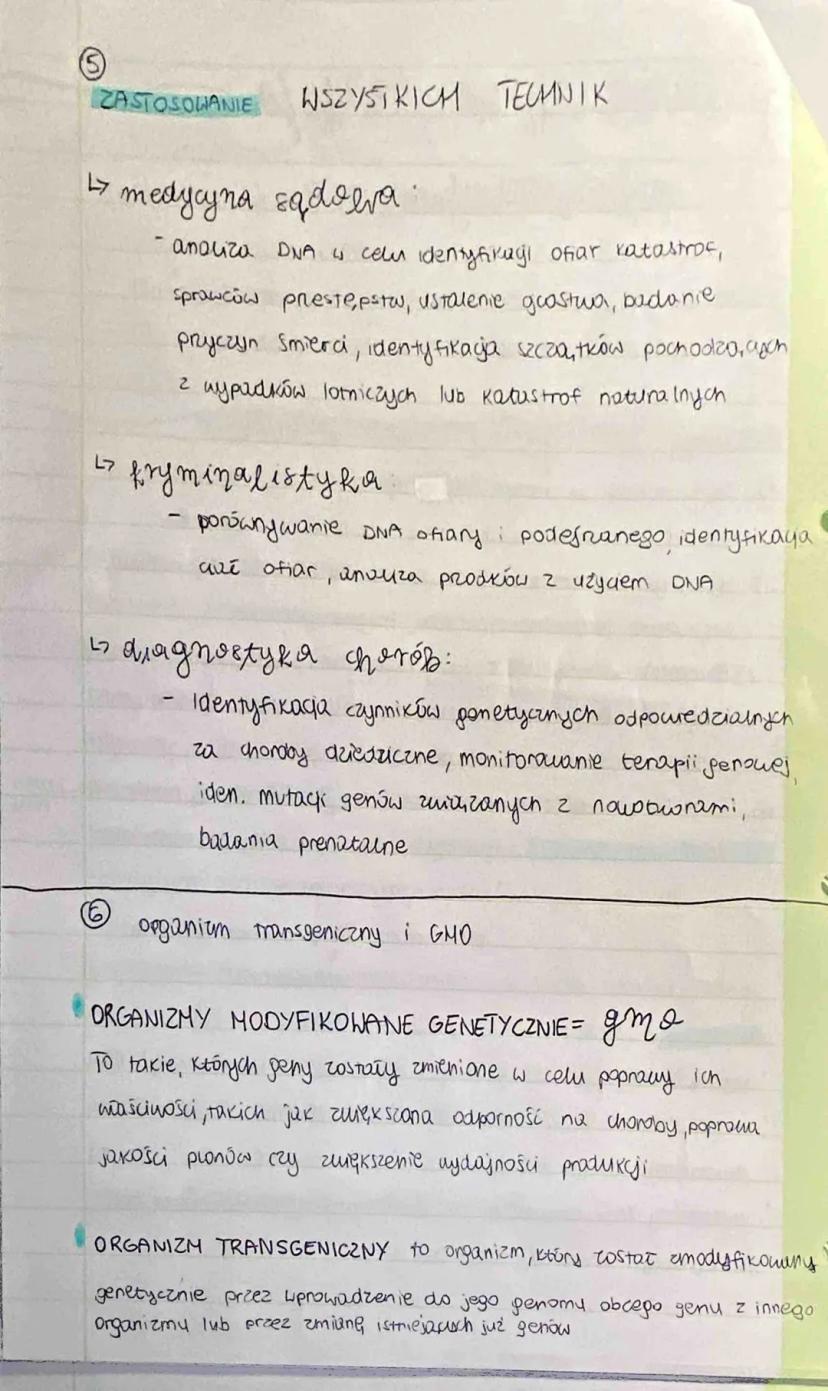 5
ZASTOSOWANIE WSZYSTKICH TECHNIK
↳ medycyna sądowa:
- analiza DNA w celu identyfikacji ofiar katastrof,
sprawców przestępstw, ustalenie ojcostwa, badanie
przyczyn śmierci, identyfikacja szczątków pochodzących
z wypadków lotniczych lub katastrof naturalnych
↳ kryminalistyka:
- porównywanie DNA ofiary i podejrzanego, identyfikacja
ciał ofiar, analiza przodków z użyciem DNA
↳ diagnostyka chorób:
- identyfikacja czynników genetycznych odpowiedzialnych
za choroby dziedziczne, monitorowanie terapii genowej,
iden. mutacji genów związanych z nowotworami,
badania prenatalne
6 organizm transgeniczny i GMO
ORGANIZMY MODYFIKOWANE GENETYCZNIE = gmo
To takie, których geny zostały zmienione w celu poprawy ich
właściwości, takich jak zwiększona odporność na choroby, poprawa
jakości plonów czy zwiększenie wydajności produkcji
ORGANIZM TRANSGENICZNY to organizm, który został zmodyfikowany
genetycznie przez wprowadzenie do jego genomu obcego genu z innego
organizmu lub przez zmianę istniejących już genów